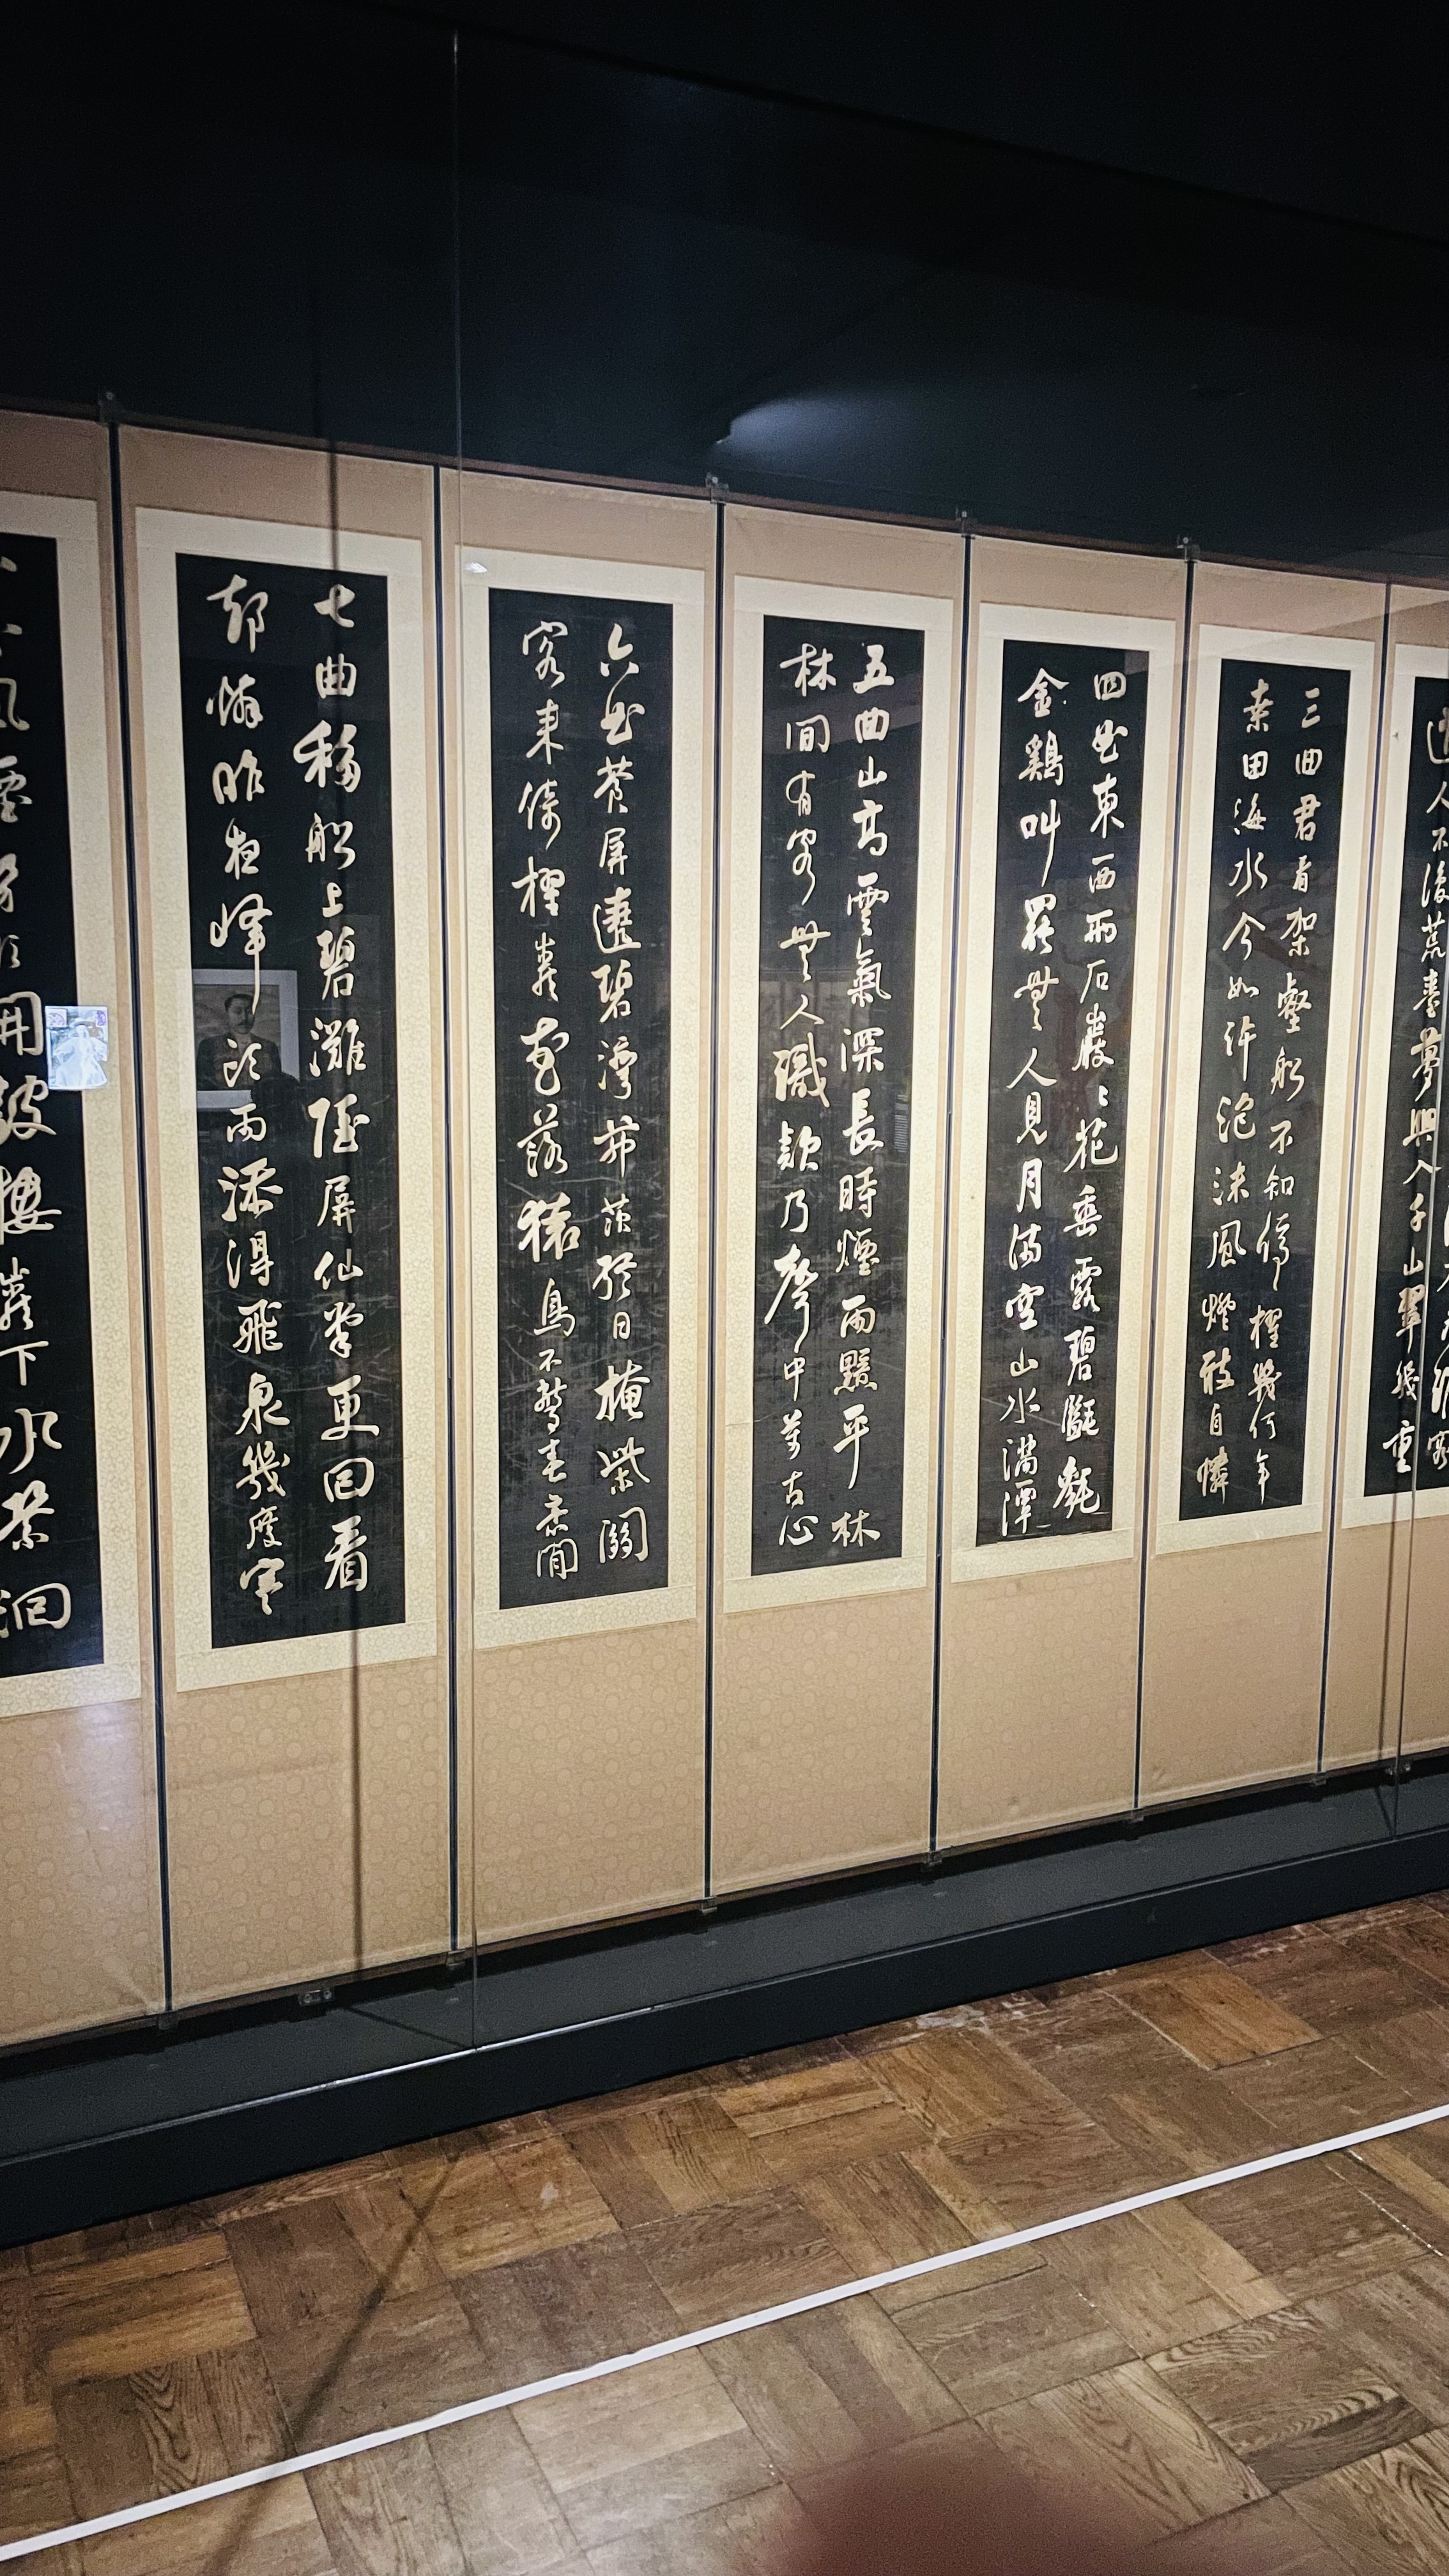 道人不復荒臺夢興入千山翠幾重
三曲君看架壑船不知停櫂幾何年
桑田海水今如許泡沫風燈敢自憐
四曲東西兩石巖〻花垂露碧㲯毿
金鷄叫罷無人見月滿空山水滿潭
五曲山高雲氣深長時煙雨黯平林
林間有客無人識欸乃聲中萬古心
六曲蒼屏遶碧灣茆茨終日掩柴關
客來倚櫂巖花落猿鳥不驚春意閒
七曲移船上碧灘隱屏仙掌更回看
却憐昨夜峰頭雨添得飛泉幾度寒
風煙勢欲開鼓樓巖下水縈洄